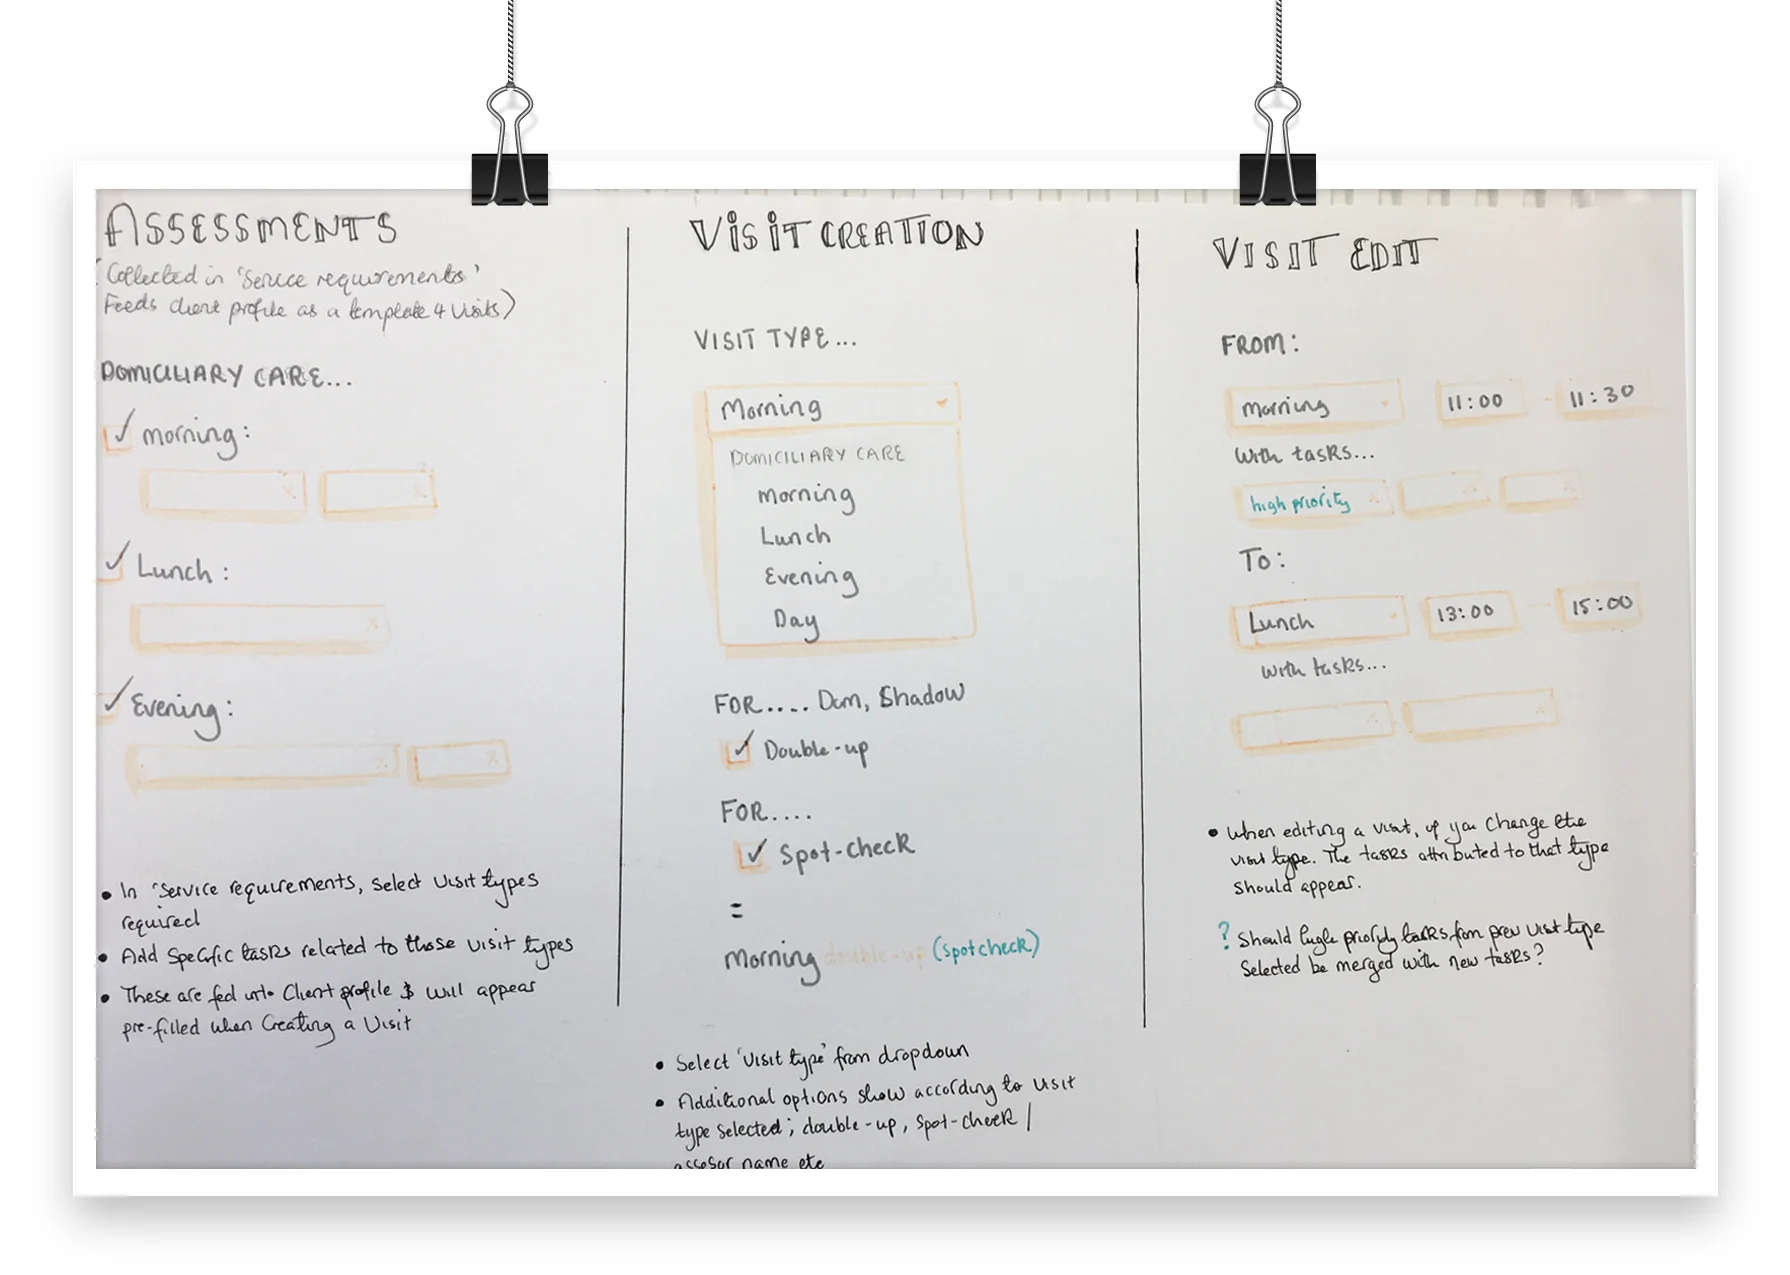 ASSESSMENTS
(Collected in 'Service requirements'
Feeds client profile as a template 4 visits)
DOMICILIARY CARE...
morning:
Lunch:
Evening:
• In 'Service requirements, select visit types
required
• Add specific tasks related to those visit types
• These are fed into Client profile & will appear
pre-filled when Creating a Visit
VISIT CREATION
VISIT TYPE...
Morning
DOMICILIARY CARE
morning
Lunch
Evening
Day
FOR.... Dom, Shadow
Double-up
FOR....
Spot-check
=
Morning double-up (spotcheck)
• Select 'visit type' from dropdown
• Additional options show according to visit
type selected; double-up, spot-check /
assesor name etc
VISIT EDIT
FROM:
morning 11:00 - 11:30
with tasks...
high priority
To:
Lunch 13:00 - 15:00
with tasks...
• When editing a visit, if you change the
visit type. The tasks attributed to that type
should appear.
? Should high priority tasks from prev visit type
selected be merged with new tasks?